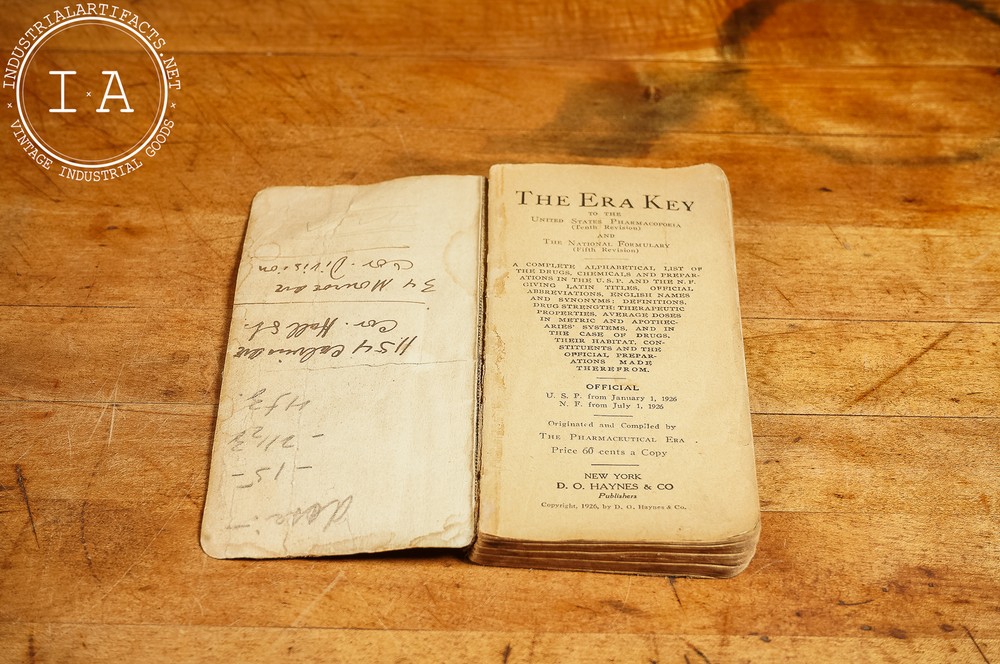 INDUSTRIALARTIFACTS.NET
I × A
VINTAGE INDUSTRIAL GOODS
dose:-
-15-
-2123
1154
Cor. Hall St.
34 Monroe ave
Cor. Division
THE ERA KEY
TO THE
UNITED STATES PHARMACOPOEIA
(Tenth Revision)
AND
THE NATIONAL FORMULARY
(Fifth Revision)
A COMPLETE ALPHABETICAL LIST OF
THE DRUGS, CHEMICALS AND PREPAR-
ATIONS IN THE U.S.P. AND THE N.F.
GIVING LATIN TITLES, OFFICIAL
ABBREVIATIONS, ENGLISH NAMES
AND SYNONYMS; DEFINITIONS,
DRUG STRENGTH; THERAPEUTIC
PROPERTIES, AVERAGE DOSES
IN METRIC AND APOTHEC-
ARIES' SYSTEMS, AND IN
THE CASE OF DRUGS,
THEIR HABITAT, CON-
STITUENTS AND THE
OFFICIAL PREPAR-
ATIONS MADE
THEREFROM.
OFFICIAL
U. S. P. from January 1, 1926
N. F. from July 1, 1926
Originated and Compiled by
THE PHARMACEUTICAL ERA
Price 60 cents a Copy
NEW YORK
D. O. HAYNES & CO
Publishers
Copyright, 1926, by D. O. Haynes & Co.